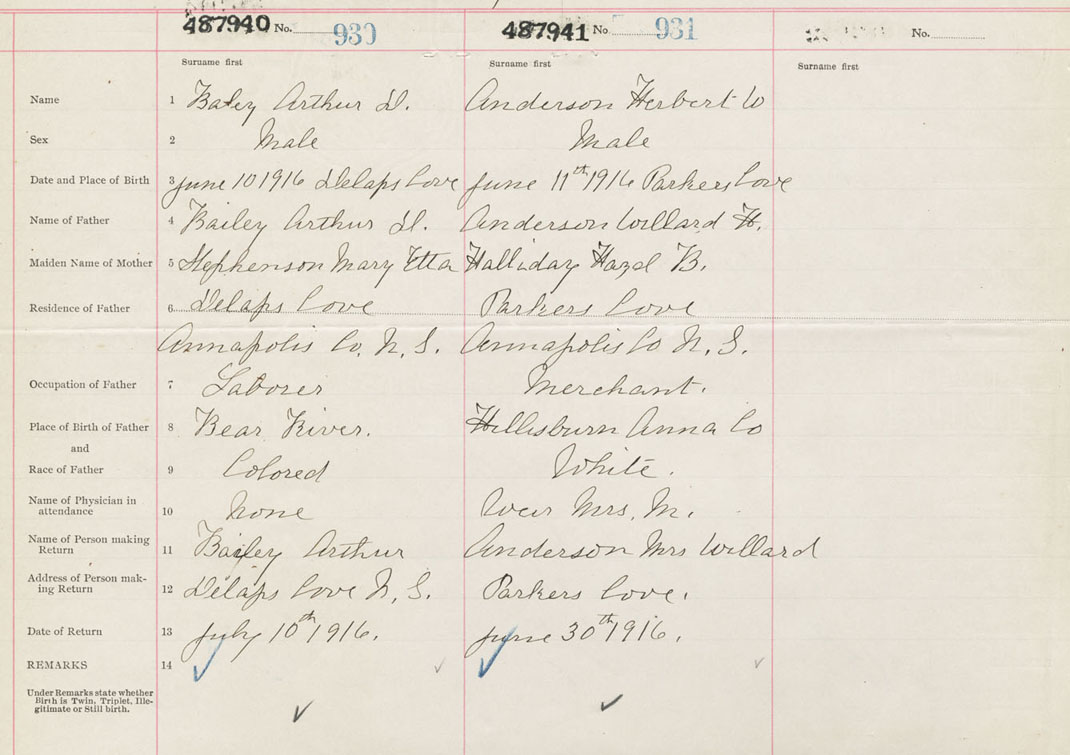 487940 No. 930 487941 No 931 No.
Surname first Surname first Surname first
Name 1 Baley Arthur D. Anderson Herbert W
Sex 2 Male Male
Date and Place of Birth 3 June 10 1916 Delaps Cove June 11th 1916 Parkers Cove
Name of Father 4 Bailey Arthur D. Anderson Willard H.
Maiden Name of Mother 5 Stephenson Mary Etta Halliday Hazel B.
Residence of Father 6 Delaps Cove Parkers Cove
Annapolis Co, N, S. Annapolis Co N, S.
Occupation of Father 7 Laborer Merchant.
Place of Birth of Father 8 Bear River. Hillisburn Anna Co
and
Race of Father 9 Colored White.
Name of Physician in
attendance 10 None Weir Mrs, M.
Name of Person making
Return 11 Bailey Arthur Anderson Mrs Willard
Address of Person mak-
ing Return 12 Delaps Cove N, S. Parkers Cove.
Date of Return 13 July 10th 1916. June 30th 1916.
REMARKS 14
Under Remarks state whether
Birth is Twin, Triplet, Ille-
gitimate or Still birth.